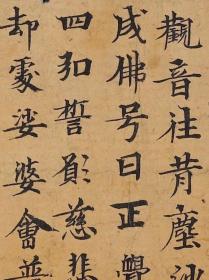 觀音往昔塵沙
成佛号曰正覺
四弘誓願慈悲
却處娑婆會